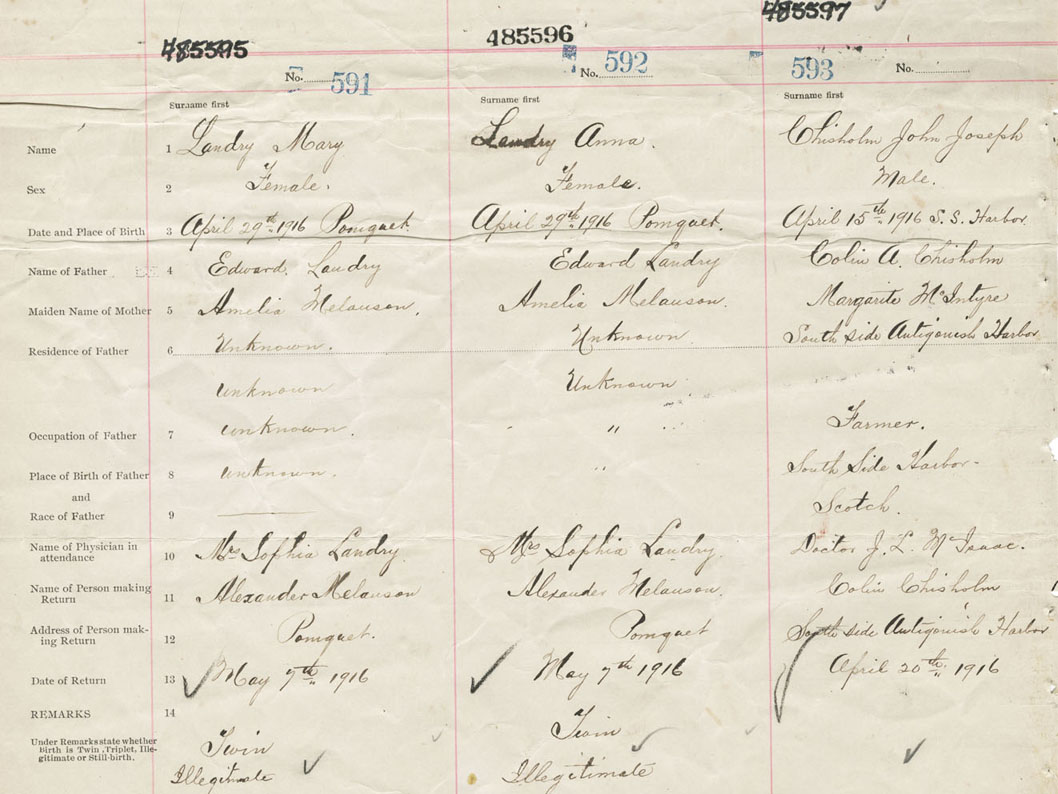 485595 485596 485597
No. 591 No. 592 593 No.
Surname first Surname first Surname first
Name 1 Landry Mary Landry Anna. Chisholm John Joseph
Sex 2 Female. Female. Male.
Date and Place of Birth 3 April 29th 1916 Pomquet. April 29th 1916 Pomquet. April 15th 1916 S. S. Harbor
Name of Father 4 Edward Landry Edward Landry Colin A. Chisholm
Maiden Name of Mother 5 Amelia Melanson. Amelia Melanson. Margarite McIntyre
Residence of Father 6 Unknown. Unknown South side Antigonish Harbor
unknown Unknown
Occupation of Father 7 unknown. " Farmer.
Place of Birth of Father 8 unknown. " South Side Harbor.
and
Race of Father 9 Scotch.
Name of Physician in
attendance 10 Mrs Sophia Landry Mrs Sophia Landry. Doctor J. L. McIsaac.
Name of Person making
Return 11 Alexander Melanson Alexander Melanson. Colin Chisholm
Address of Person mak-
ing Return 12 Pomquet. Pomquet South side Antigonish Harbor
Date of Return 13 May 7th 1916 May 7th 1916 April 20th 1916
REMARKS 14
Under Remarks state whether
birth is Twin, Triplet, Ille-
gitimate or Still-birth.
Twin Twin
Illegitimate Illegitimate